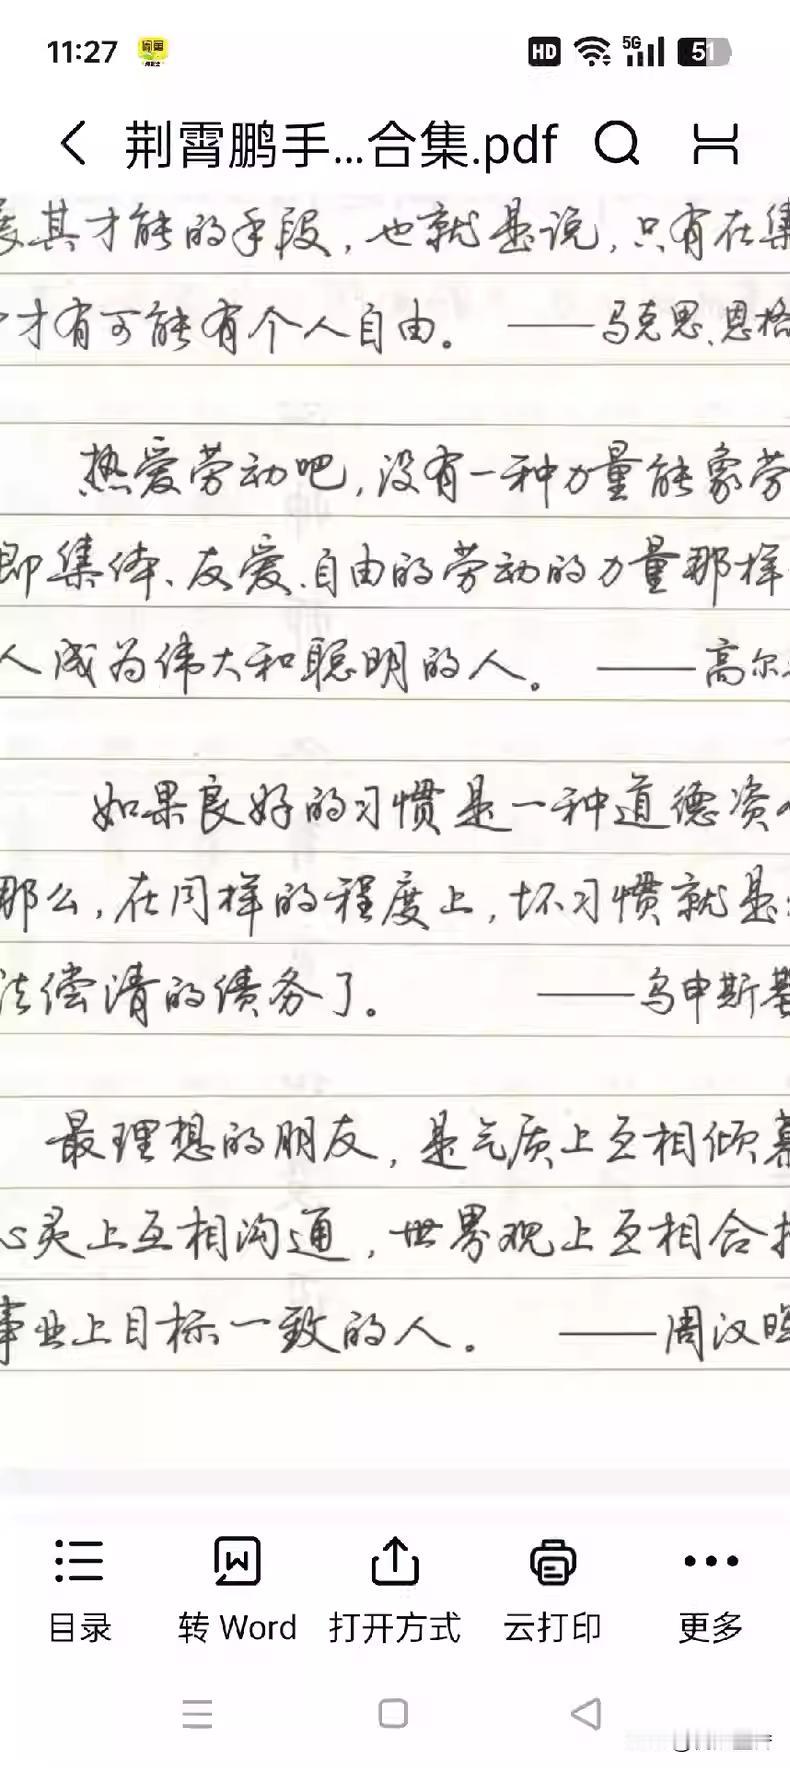 11:27
HD 5G 51
荆霄鹏手...合集.pdf
其才能的手段，也就是说，只有在集
才有可能有个人自由。 ——马克思、恩格
热爱劳动吧，没有一种力量能象劳
即集体、友爱、自由的劳动的力量那样
人成为伟大和聪明的人。 ——高尔
如果良好的习惯是一种道德资
那么，在同样的程度上，坏习惯就是
法偿清的债务了。 ——乌申斯基
最理想的朋友，是气质上互相倾慕
心灵上互相沟通，世界观上互相合
事业上目标一致的人。 ——周汉晖
目录
转 Word
打开方式
云打印
更多